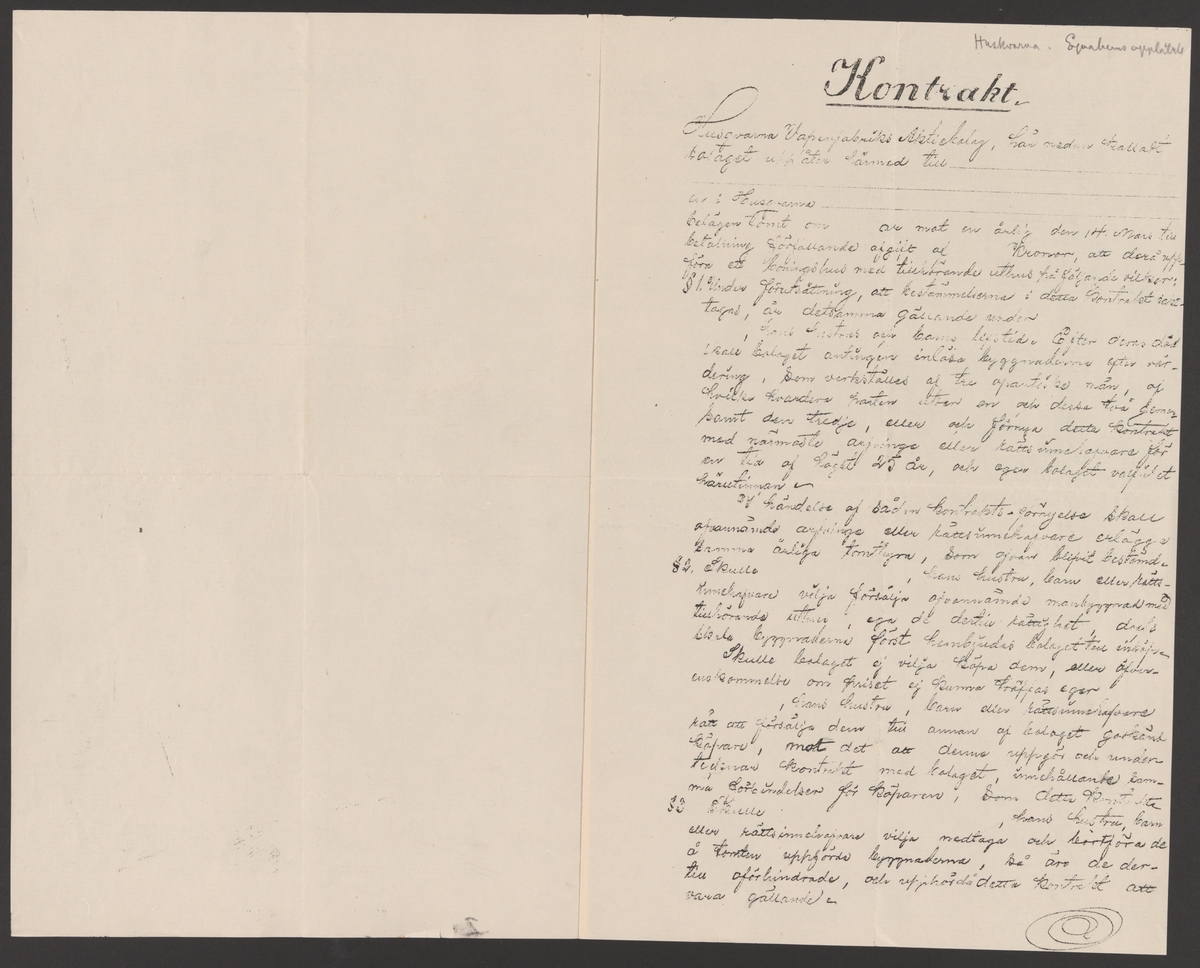 Huskvarna. Egnahems
Kontrakt.
Husqvarna Vapenfabriks Aktiebolag, här nedan kalladt
bolaget upplåter härmed till
en i Husqvarna
belägen tomt om ar mot en årlig den 14. Mars till
betalning förfallande afgift af Kronor, att derå upp-
föra ett boningshus med tillhörande uthus på följande vilkor:
§1. Under förutsättning, att bestämmelserna i detta kontrakt iakt-
tagas, är detsamma gällande under
, hans hustrus och barns lifstid. Efter deras död
skall bolaget antingen inlösa byggnaderna efter vär-
dering, som verkställes af tre opartiske män, af
hvilka hvardera parten utser en och desse två gemen-
samt den tredje, eller och förnya detta kontrakt
med närmaste arfvinge eller rättsinnehafvare för
en tid af högst 25 år, och eger bolaget valfrihet
härutinnan.
I händelse af sådan kontrakts-förnyelse skall
ofvannämde arfvinge eller rättsinnehafvare erlägga
samma årliga tomthyra, som ofvan blifvit bestämd.
§2. Skulle , hans hustru, barn eller rätts-
innehafvare vilja försälja ofvannämde manbyggnad med
tillhörande uthus, ega de dertill rättighet, dock
skola byggnaderna först hembjudas bolaget till inköp.
Skulle bolaget ej vilja köpa dem, eller öfver-
enskommelse om priset ej kunna träffas eger
, hans hustru, barn eller rättsinnehafvare
rätt att försälja dem till annan af bolaget godkänd
köpare, mot det att denne uppgör och under-
tecknar kontrakt med bolaget, innehållande sam-
ma förbindelser för köparen, som detta kontrakt.
§3 Skulle , hans hustru, barn
eller rättsinnehafvare vilja nedtaga och bortföra de
å tomten uppförda byggnaderna, så äro de der-
till oförhindrade, och upphör då detta kontrakt att
vara gällande.